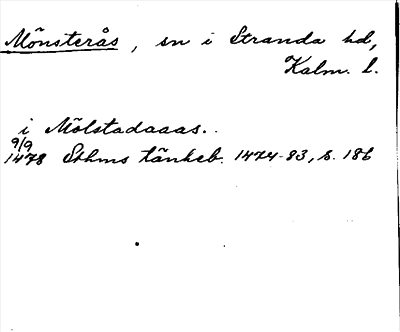 Mönsterås, sn i Stranda hd,
Kalm. l.
i Mölstadaaas..
9/9
1478 Sthms tänkeb. 1474-83, s. 186